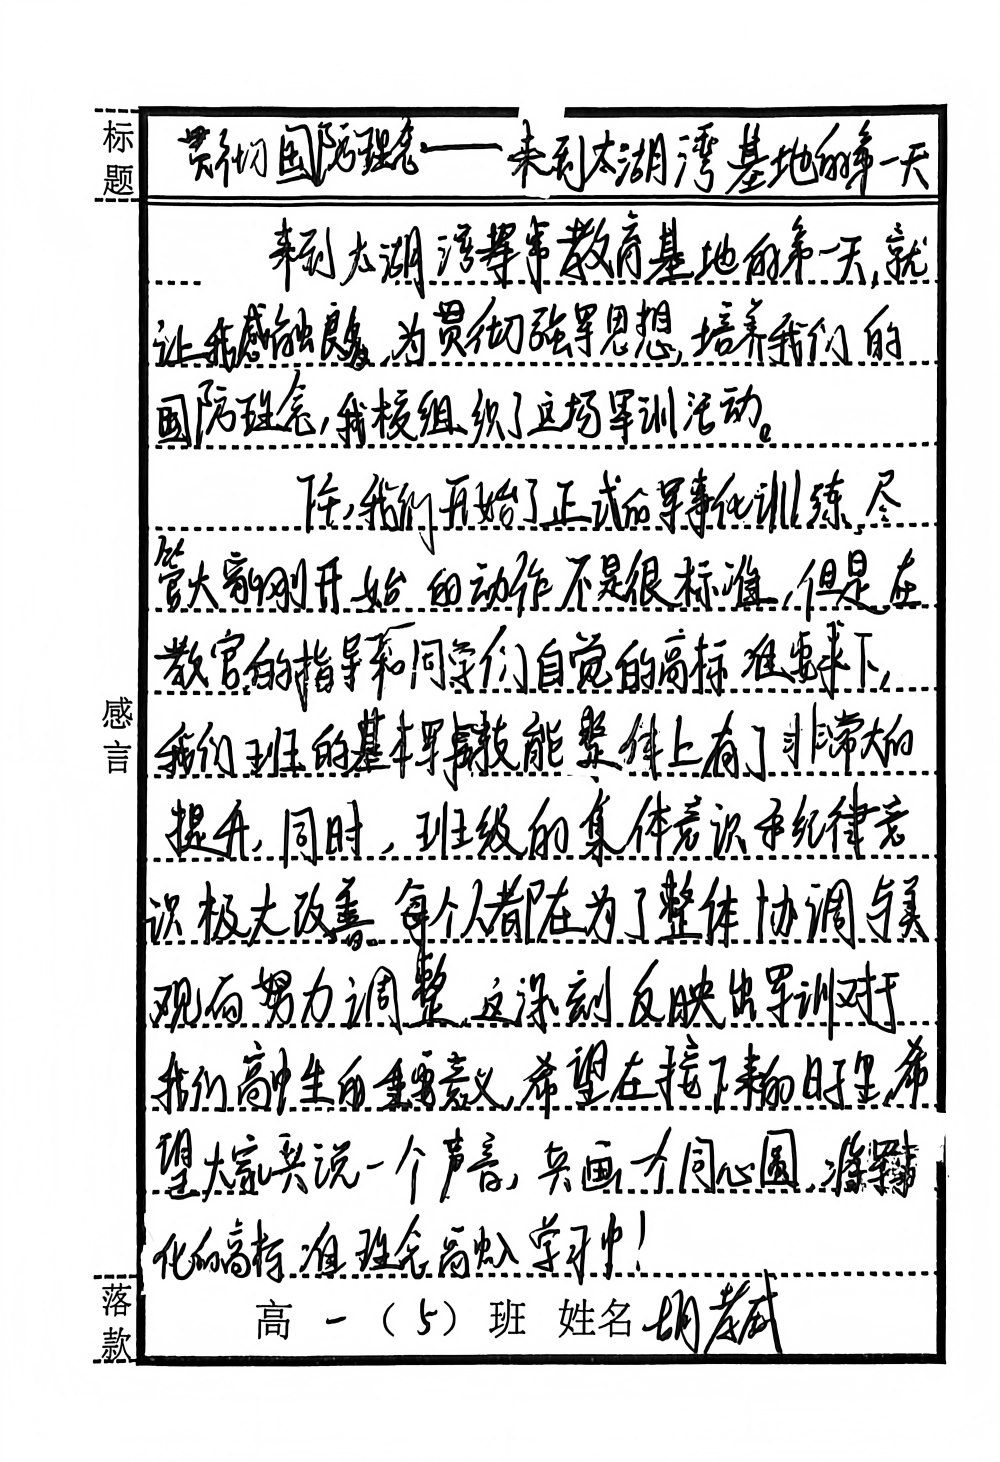 标题
贯彻国防理念——来到太湖湾基地的第一天
来到太湖湾军事教育基地的第一天,就
让我感触良多,为贯彻强军思想,培养我们的
国防理念,我校组织了这场军训活动。
下午,我们开始了正式的军事化训练,尽
管大家刚开始的动作不是很标准,但是在
教官的指导和同学们自觉的高标准要求下,
我们班的基本军事技能整体上有了非常大的
提升,同时,班级的集体意识和纪律意
识极大改善。每个人都在为了整体协调与美
观而努力调整,这深刻反映出军训对于
我们高中生的重要意义,希望在接下来的日子里,希
望大家共说一个声音,共画一个同心圆,将军事
化的高标准理念融入学习中!
感言
落款
高一(5)班 姓名 胡孝威